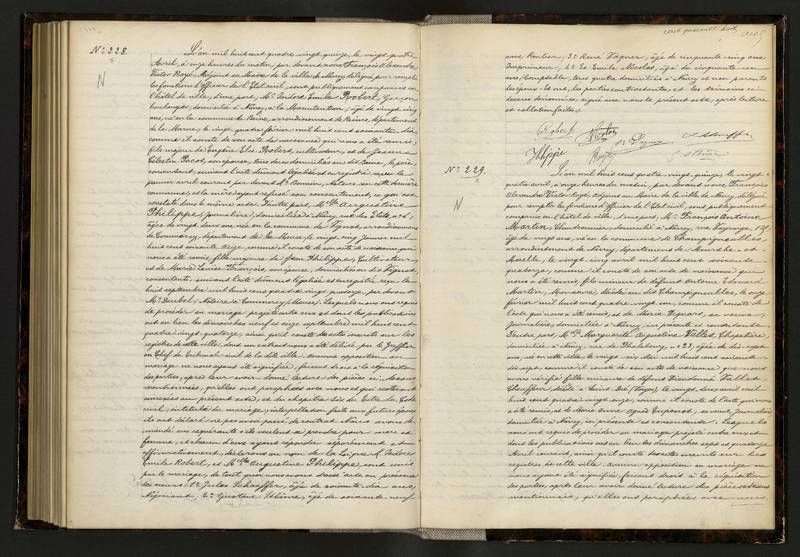 N° 228.
L'an mil huit cent quatre vingt quinze, le vingt quatre
Avril, à onze heures du matin, par devant nous François Alexandre
Victor Rozé, Adjoint au Maire de la ville de Nancy délégué pour remplir
les fonctions d'officier de l'Etat civil, sont publiquement comparus en
l'hôtel de ville, d'une part, Mr. Isidore Emile Robert, Garçon
boulanger, domicilié à Nancy, à la Manutention, âgé de vingt cinq
ans, né en la commune de Beine, arrondissement de Reims, département
de la Marne, le vingt quatre février mil huit cent soixante dix
comme il conste de son acte de naissance qui nous a été remis,
fils majeur de Eugène Elie Robert, cultivateur, et de Jeanne
Célestine, son épouse, tous deux domiciliés au dit Beine, le père
consentant, suivant l'acte dûment légalisé et enregistré, reçu le
constaté dans le même acte. D'autre part, Mlle Augustine
Philippe, journalière, domiciliée à Nancy, rue des Etats, n° 6,
âgée de vingt deux ans née en la commune de Vignot, arrondissement
de Commercy, département de la Meuse, le vingt cinq janvier mil
huit cent soixante treize, comme il conste de son acte de naissance qui
nous a été remis, fille majeure de Jean Philippe, Cultivateur
et de Marie Louise François, son épouse, domiciliés au dit Vignot,
consentants, suivant l'acte dûment légalisé et enregistré reçu le
huit septembre mil huit cent quatre vingt quatorze, par devant
Me. Deubel, Notaire à Commercy (Meuse). Lesquels nous ont requis
de procéder au mariage projeté entre eux et dont les publications
ont eu lieu les dimanches neuf et seize septembre mil huit cent
quatre vingt quatorze, ainsi qu'il conste des actes inscrits sur les
registres de cette ville, dont un extrait nous a été délivré par le Greffier
en Chef du tribunal civil de la dite ville. aucune opposition au
mariage ne nous ayant été signifiée, faisant droit à la réquisition
des parties, après leur avoir donné lecture des pièces ci-dessus
mentionnées, qu'elles ont paraphées avec nous et qui resteront
annexées au présent acte, et du chapitre six du titre du Code
civil, intitulé du mariage, interpellation faite aux futurs époux
ils ont déclaré ne pas avoir passé de contrat. Nous avons de-
mandé aux requérants s'ils veulent se prendre pour mari et
femme, et chacun d'eux ayant répondu séparément et
affirmativement, déclarons au nom de la Loi que M. Isidore
Emile Robert, et Mlle Augustine Philippe, sont unis
par le mariage, de tout quoi nous avons dressé acte en présence
des sieurs: 1° Jules Schaeffer, âgé de soixante dix ans
Négociant, 2° Gustave Thième, âgé de soixante neuf
ans, Rentier, 3° René Vagner, âgé de cinquante cinq ans
Imprimeur, 4° et Emile Nicolas, âgé de cinquante cinq
ans, Comptable, tous quatre domiciliés à Nancy et non parents
des époux. Les parties contractantes, et les témoins ci-
dessus dénommés, signé avec nous le présent acte, après lecture
et collation faites.
Robert
Nicolas
Philippe
R. Vagner
Rozé
N° 229.
L'an mil huit cent quatre vingt quinze, le vingt
quatre avril, à onze heures du matin, par devant nous, François
Alexandre Victor Rozé, Adjoint au Maire de la ville de Nancy, délégué
pour remplir les fonctions d'officier de l'Etat civil, sont publiquement
comparus en l'hôtel de ville, d'une part, Mr. François Antoine
Martin, Chaudronnier, domicilié à Nancy,
âgé de vingt ans, né en la commune de Champigneulles,
arrondissement de Nancy, département de Meurthe-et-
Moselle, le vingt cinq avril mil huit cent soixante
quatorze, comme il conste de son acte de naissance qui
nous a été remis, fils mineur de défunt Antoine Edouard
Martin, Manœuvre, décédé au dit Champigneulles, le onze
février mil huit cent quatre vingt un, comme il conste de
l'acte qui nous a été remis, et de Marie Pignard, sa veuve,
journalière, domiciliée à Nancy, ici présente et consentante.
D'autre part, Mlle Marguerite Augustine Vallet, Chapelière,
domiciliée à Nancy, rue de Phalsbourg, n° 23, âgée de dix sept
ans, née en cette ville le vingt six Mai mil huit cent soixante
dix sept, comme il conste de son acte de naissance que nous
avons vérifié, fille mineure de défunt Vallet,
Chauffeur, décédé à, le vingt deux avril mil
huit cent quatre vingt onze, comme il conste de l'acte qui nous
a été remis, et de Marie Anne, sa veuve, journalière
domiciliée à Nancy, ici présente et consentante. Lesquels
nous ont requis de procéder au mariage projeté entre eux, et
dont les publications ont eu lieu les dimanches sept et quatorze
Avril courant, ainsi qu'il conste des actes inscrits sur les
registres de cette ville. aucune opposition au mariage ne
nous ayant été signifiée, faisant droit à la réquisition
des parties, après leur avoir donné lecture des pièces ci-dessus
mentionnées, qu'elles ont paraphées avec nous